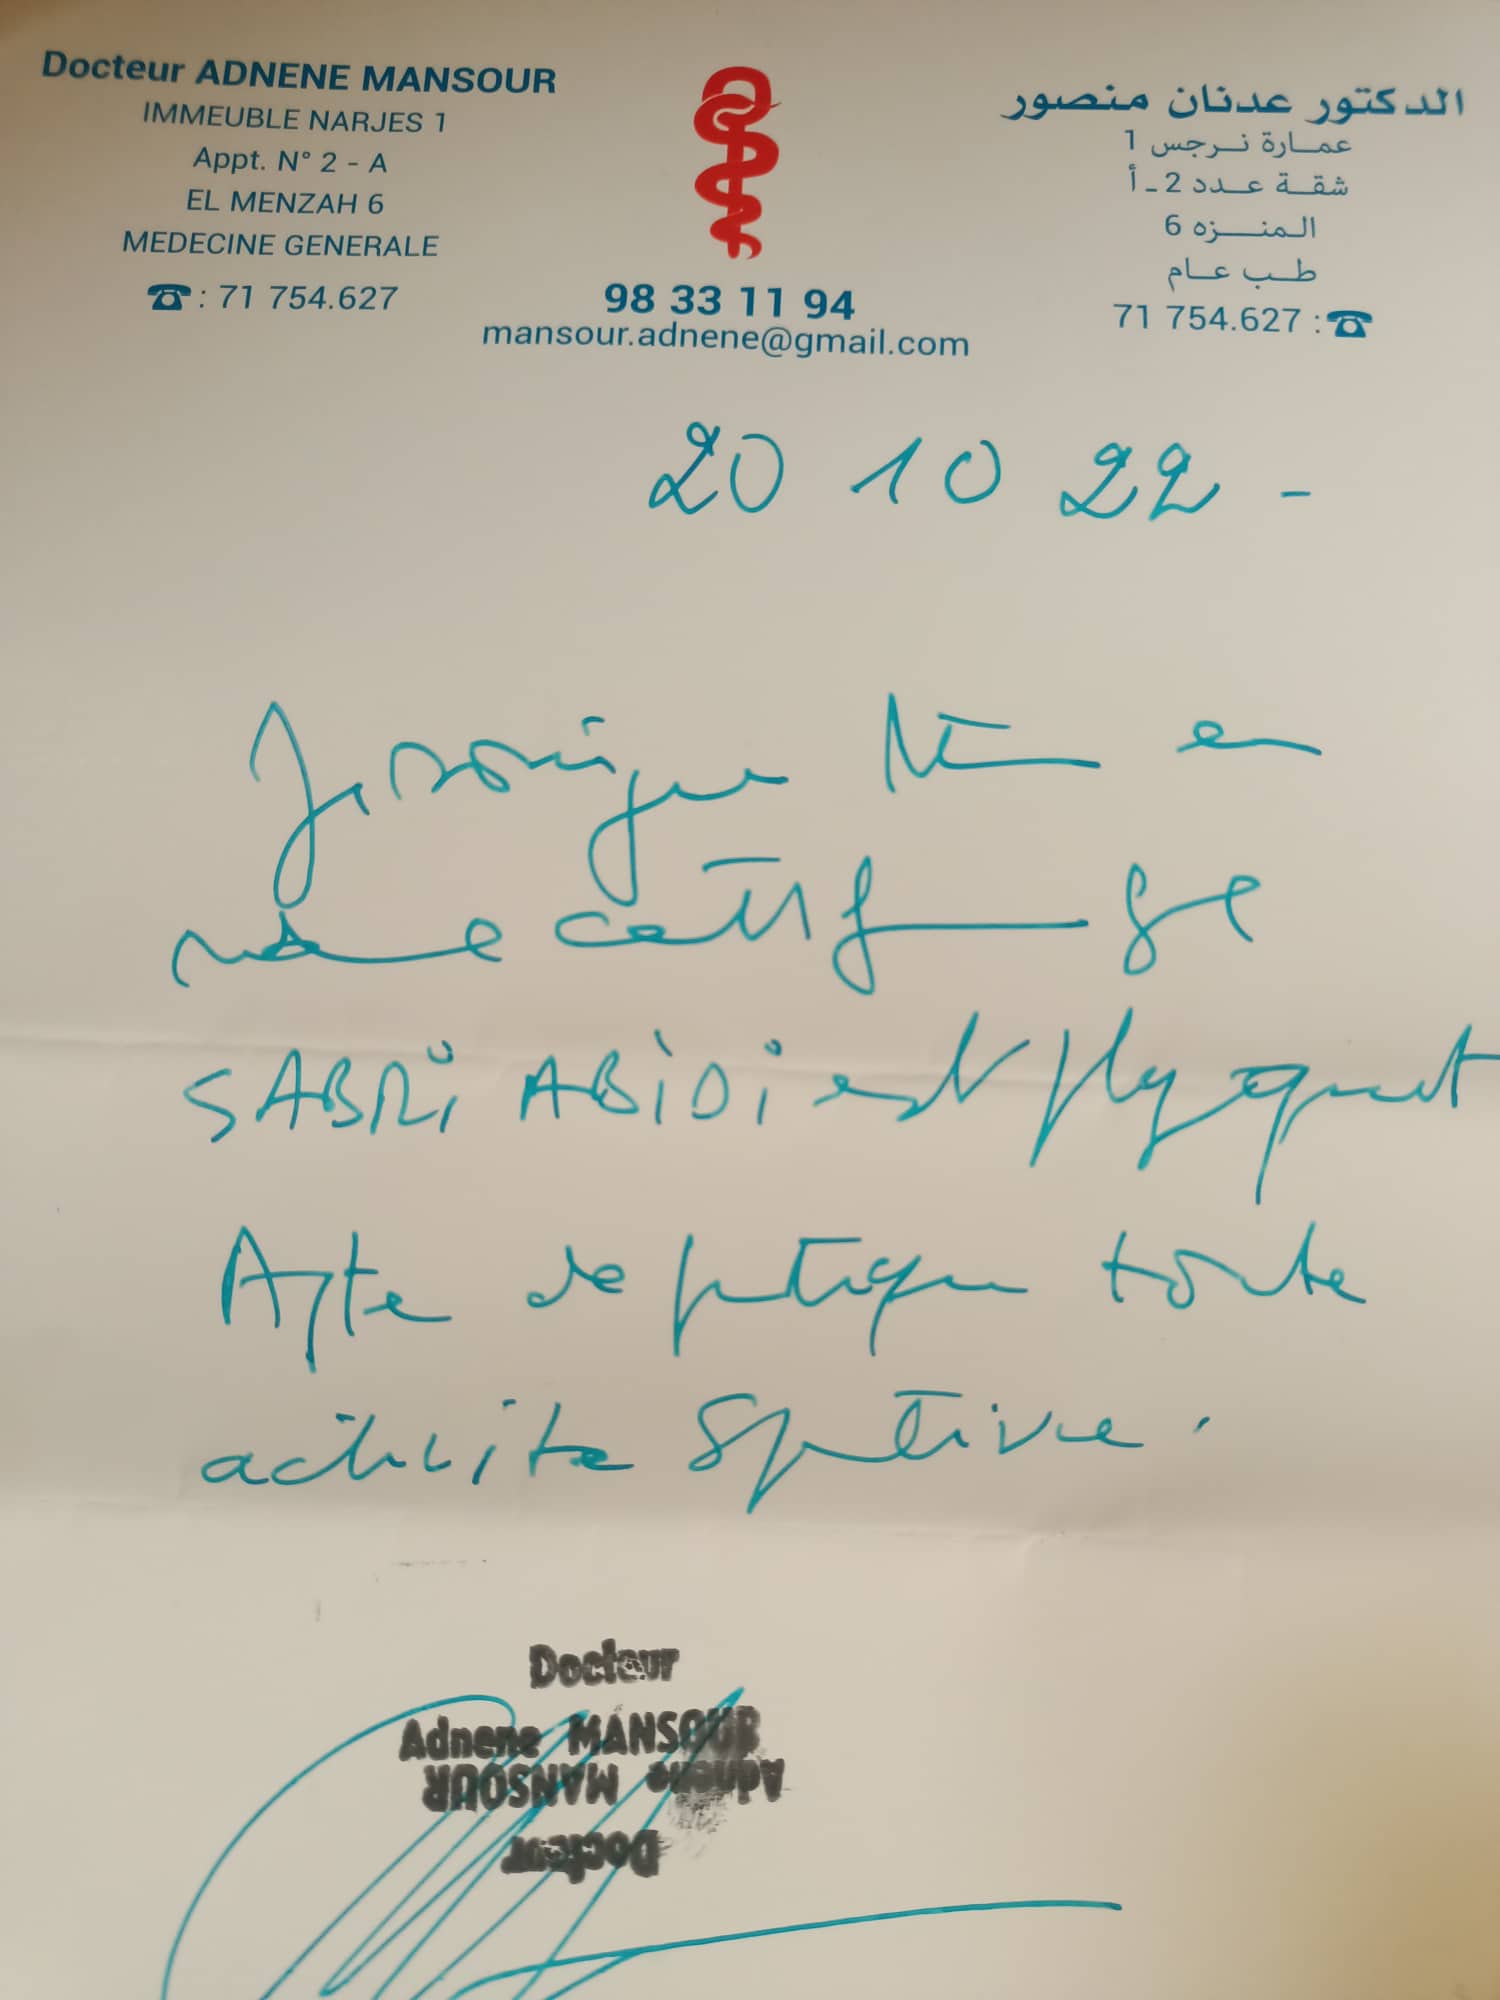 Docteur ADNENE MANSOUR
IMMEUBLE NARJES 1
Appt. N° 2 - A
EL MENZAH 6
MEDECINE GENERALE
☎ : 71 754.627
98 33 11 94
mansour.adnene@gmail.com
الدكتور عدنان منصور
عمارة نرجس 1
شقة عدد 2 - أ
المنزه 6
طب عام
71 754.627 : ☎
20 10 22 -
Je soussigné en
certifie
SABRi ABiDi est physiquement
Apte de pratiquer toute
activité sportive.
Docteur
Adnene MANSOUR
Adnene MANSOUR
Docteur